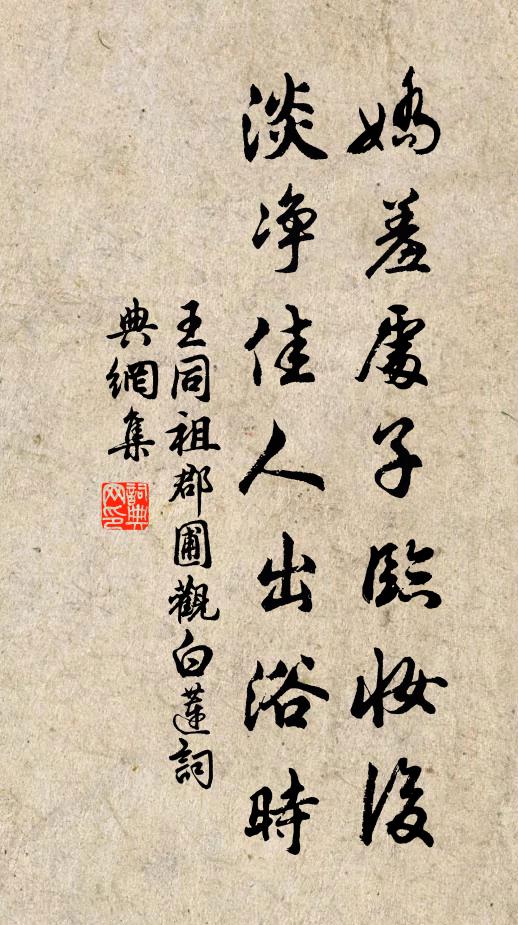 嬌羞處子臨妝後
淡净佳人出浴時
王同祖郡圃觀白蓮詞
典網集
詞典網印